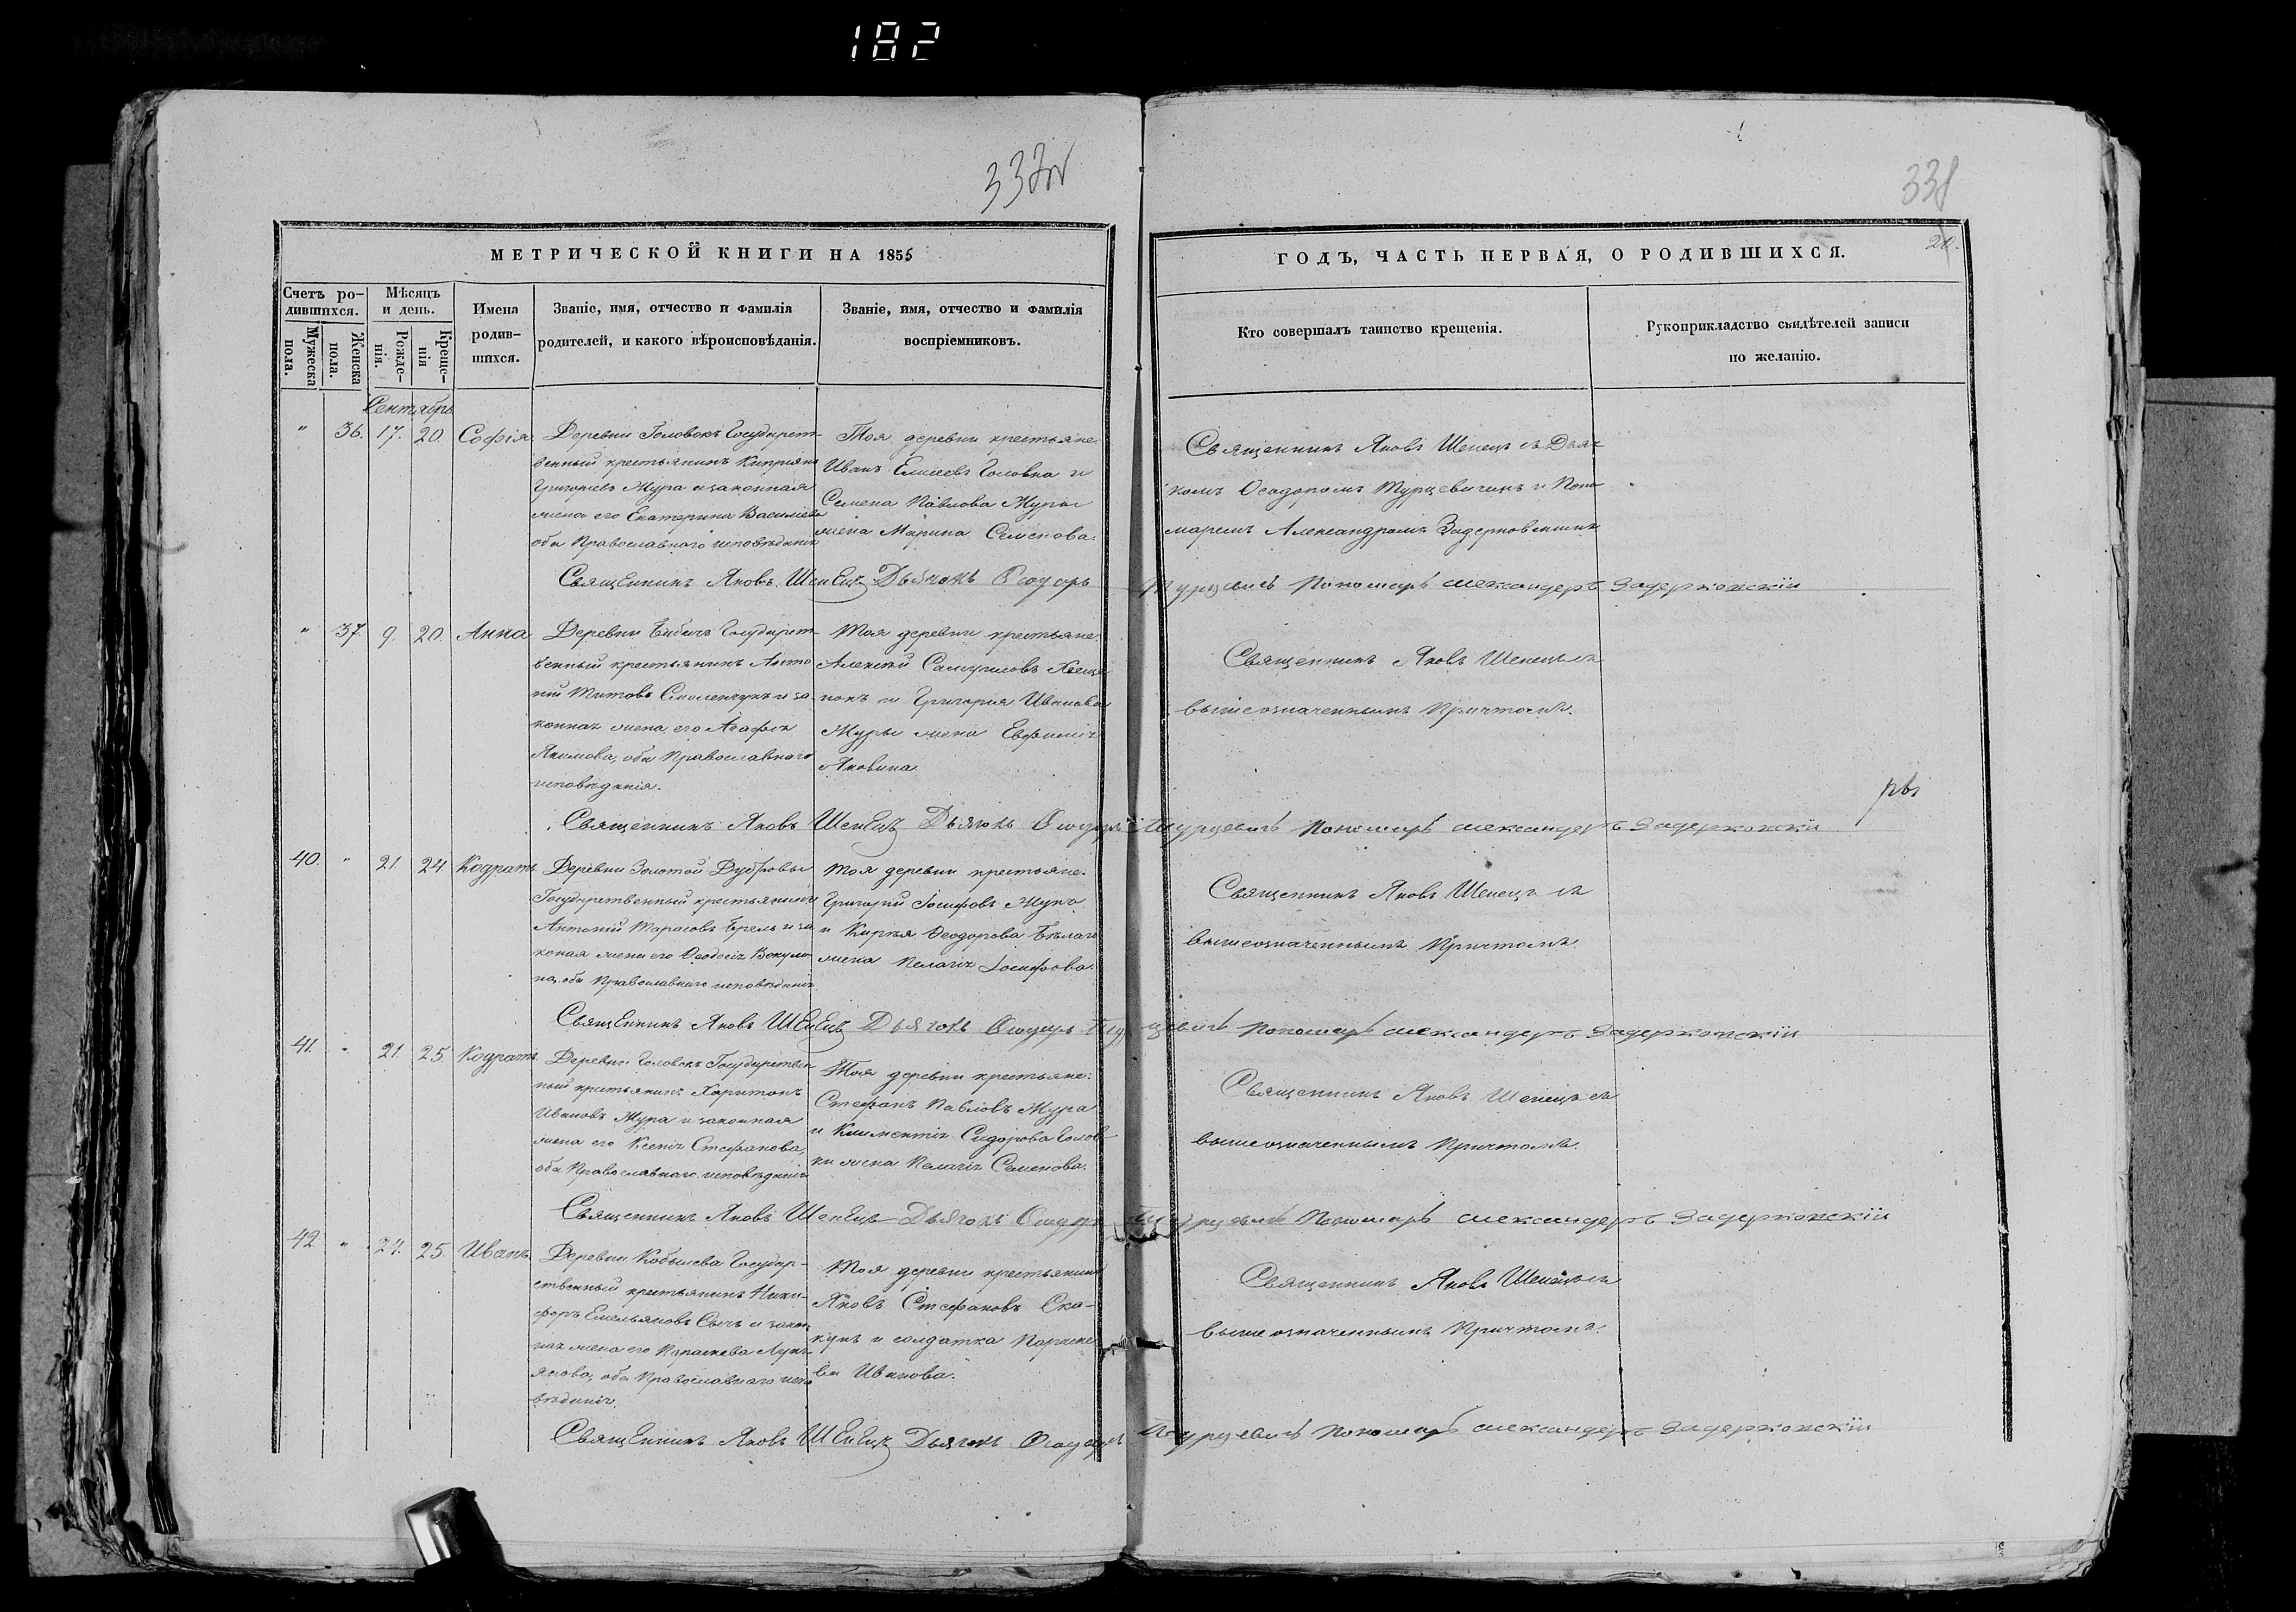 182
338
20.
МЕТРИЧЕСКОЙ КНИГИ НА 1855
Счетъ ро-
дившихся.
Мужеска
пола.
Женска
пола.
Мѣсяцъ
и день.
Рожде-
нія.
Креще-
нія
Имена
родив-
шихся.
Званіе, имя, отчество и фамилія
родителей, и какого вѣроисповѣданія.
Званіе, имя, отчество и фамилія
воспріемниковъ.
ГОДЪ, ЧАСТЬ ПЕРВАЯ, О РОДИВШИХСЯ.
Кто совершалъ таинство крещенія.
Рукоприкладство свидѣтелей записи
по желанію.
Сентябрь
" 36. 17. 20. Софія
Деревни Головокъ Государст-
венный крестьянинъ Кипріянъ
Григорьевъ Жура и законная
жена его Екатерина Василіева
оба Православнаго исповѣданія
Тоя деревни крестьяне.
Иванъ Елисеевъ Головка и
Семена Павлова Журы
жена Марина Семенова.
Священникъ Яковъ Шенецъ съ Дьяч-
комъ Ѳеодоромъ Турцевичемъ и Поно-
маремъ Александромъ Задерковскимъ
Священникъ Яковъ Шенецъ Дьячокъ Ѳеодоръ Турцевичъ Пономарь Александеръ Задерковскій
" 37. 9. 20. Анна
Деревни Государст-
венный крестьянинъ Анто-
ній Титовъ и за-
конная жена его Агафія
Якимова, оба Православнаго
исповѣданія.
Тоя деревни крестьяне.
Алексѣй Самуиловъ
и Григорія Иванова
Журы жена Евфимія
Яковина
Священникъ Яковъ Шенецъ съ
вышеозначеннымъ Причтомъ.
Священникъ Яковъ Шенецъ Дьячокъ Ѳеодоръ Турцевичъ Пономарь Александеръ Задерковскій
40. " 21. 24. Кодратъ
Деревни Золотой Дубровы
Государственный крестьянинъ
Антоній Тарасовъ и за-
коная жена его Ѳеодосія
оба Православнаго исповѣданія
Тоя деревни крестьяне.
Григорій Іосифовъ Жукъ
и Ѳеодорова
жена Пелагія Іосифова.
Священникъ Яковъ Шенецъ съ
вышеозначеннымъ Причтомъ
Священникъ Яковъ Шенецъ Дьячокъ Ѳеодоръ Турцевичъ Пономарь Александеръ Задерковскій
41. " 21. 25. Кодратъ
Деревни Головокъ Государствен-
ный крестьянинъ Харитонъ
Ивановъ Жура и законная
жена его Ксенія Стефанова,
оба Православнаго исповѣданія
Тоя деревни крестьяне.
Стефанъ Павловъ Жура
и Климентія Сидорова Голов-
ки жена Пелагія Семенова.
Священникъ Яковъ Шенецъ съ
вышеозначеннымъ Причтомъ.
Священникъ Яковъ Шенецъ Дьячокъ Ѳеодоръ Турцевичъ Пономарь Александеръ Задерковскій
42. " 25. Иванъ.
Деревни Государ-
ственный крестьянинъ Ники-
форъ Емельяновъ Сычъ и закон-
ная жена его Параскева Лукь-
янова, оба Православнаго испо-
вѣданія.
Тоя деревни крестьянинъ
Яковъ Стефановъ Ска-
кунъ и солдатка Параске-
ва Иванова.
Священникъ Яковъ Шенецъ съ
вышеозначеннымъ Причтомъ.
Священникъ Яковъ Шенецъ Дьячокъ Ѳеодоръ Турцевичъ Пономарь Александеръ Задерковскій